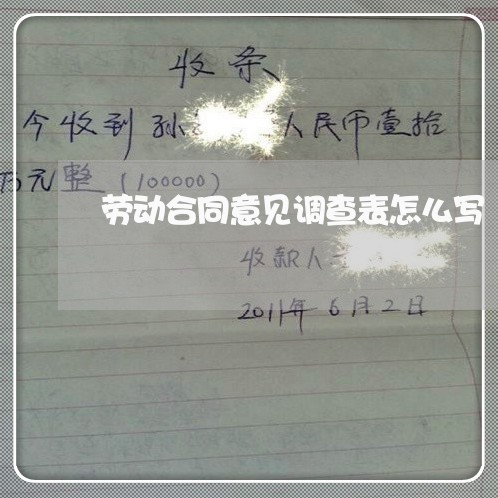 收条
今收到孙 人民币壹拾
万元整（100000）
劳动合同意见调查表怎么写
收款人
2011年6月2日